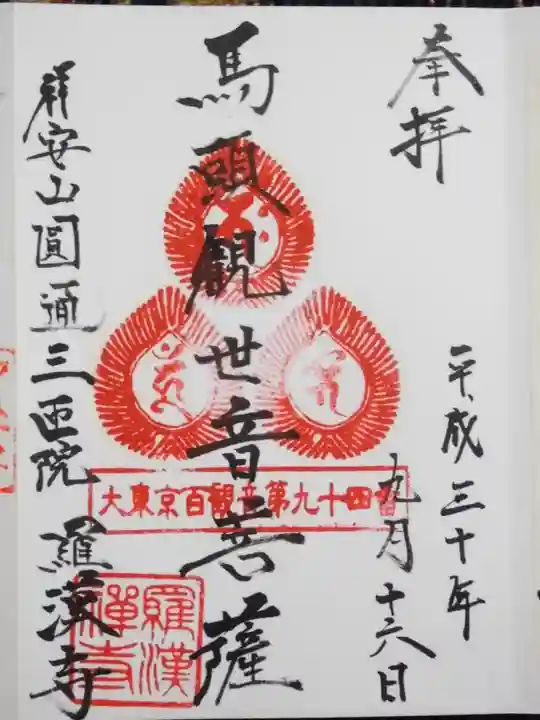 奉拝
平成三十年
九月十六日
馬頭観世音菩薩
大東京百観音第九十四番
祥安山圓通三匝院 羅漢寺
羅漢
禅寺